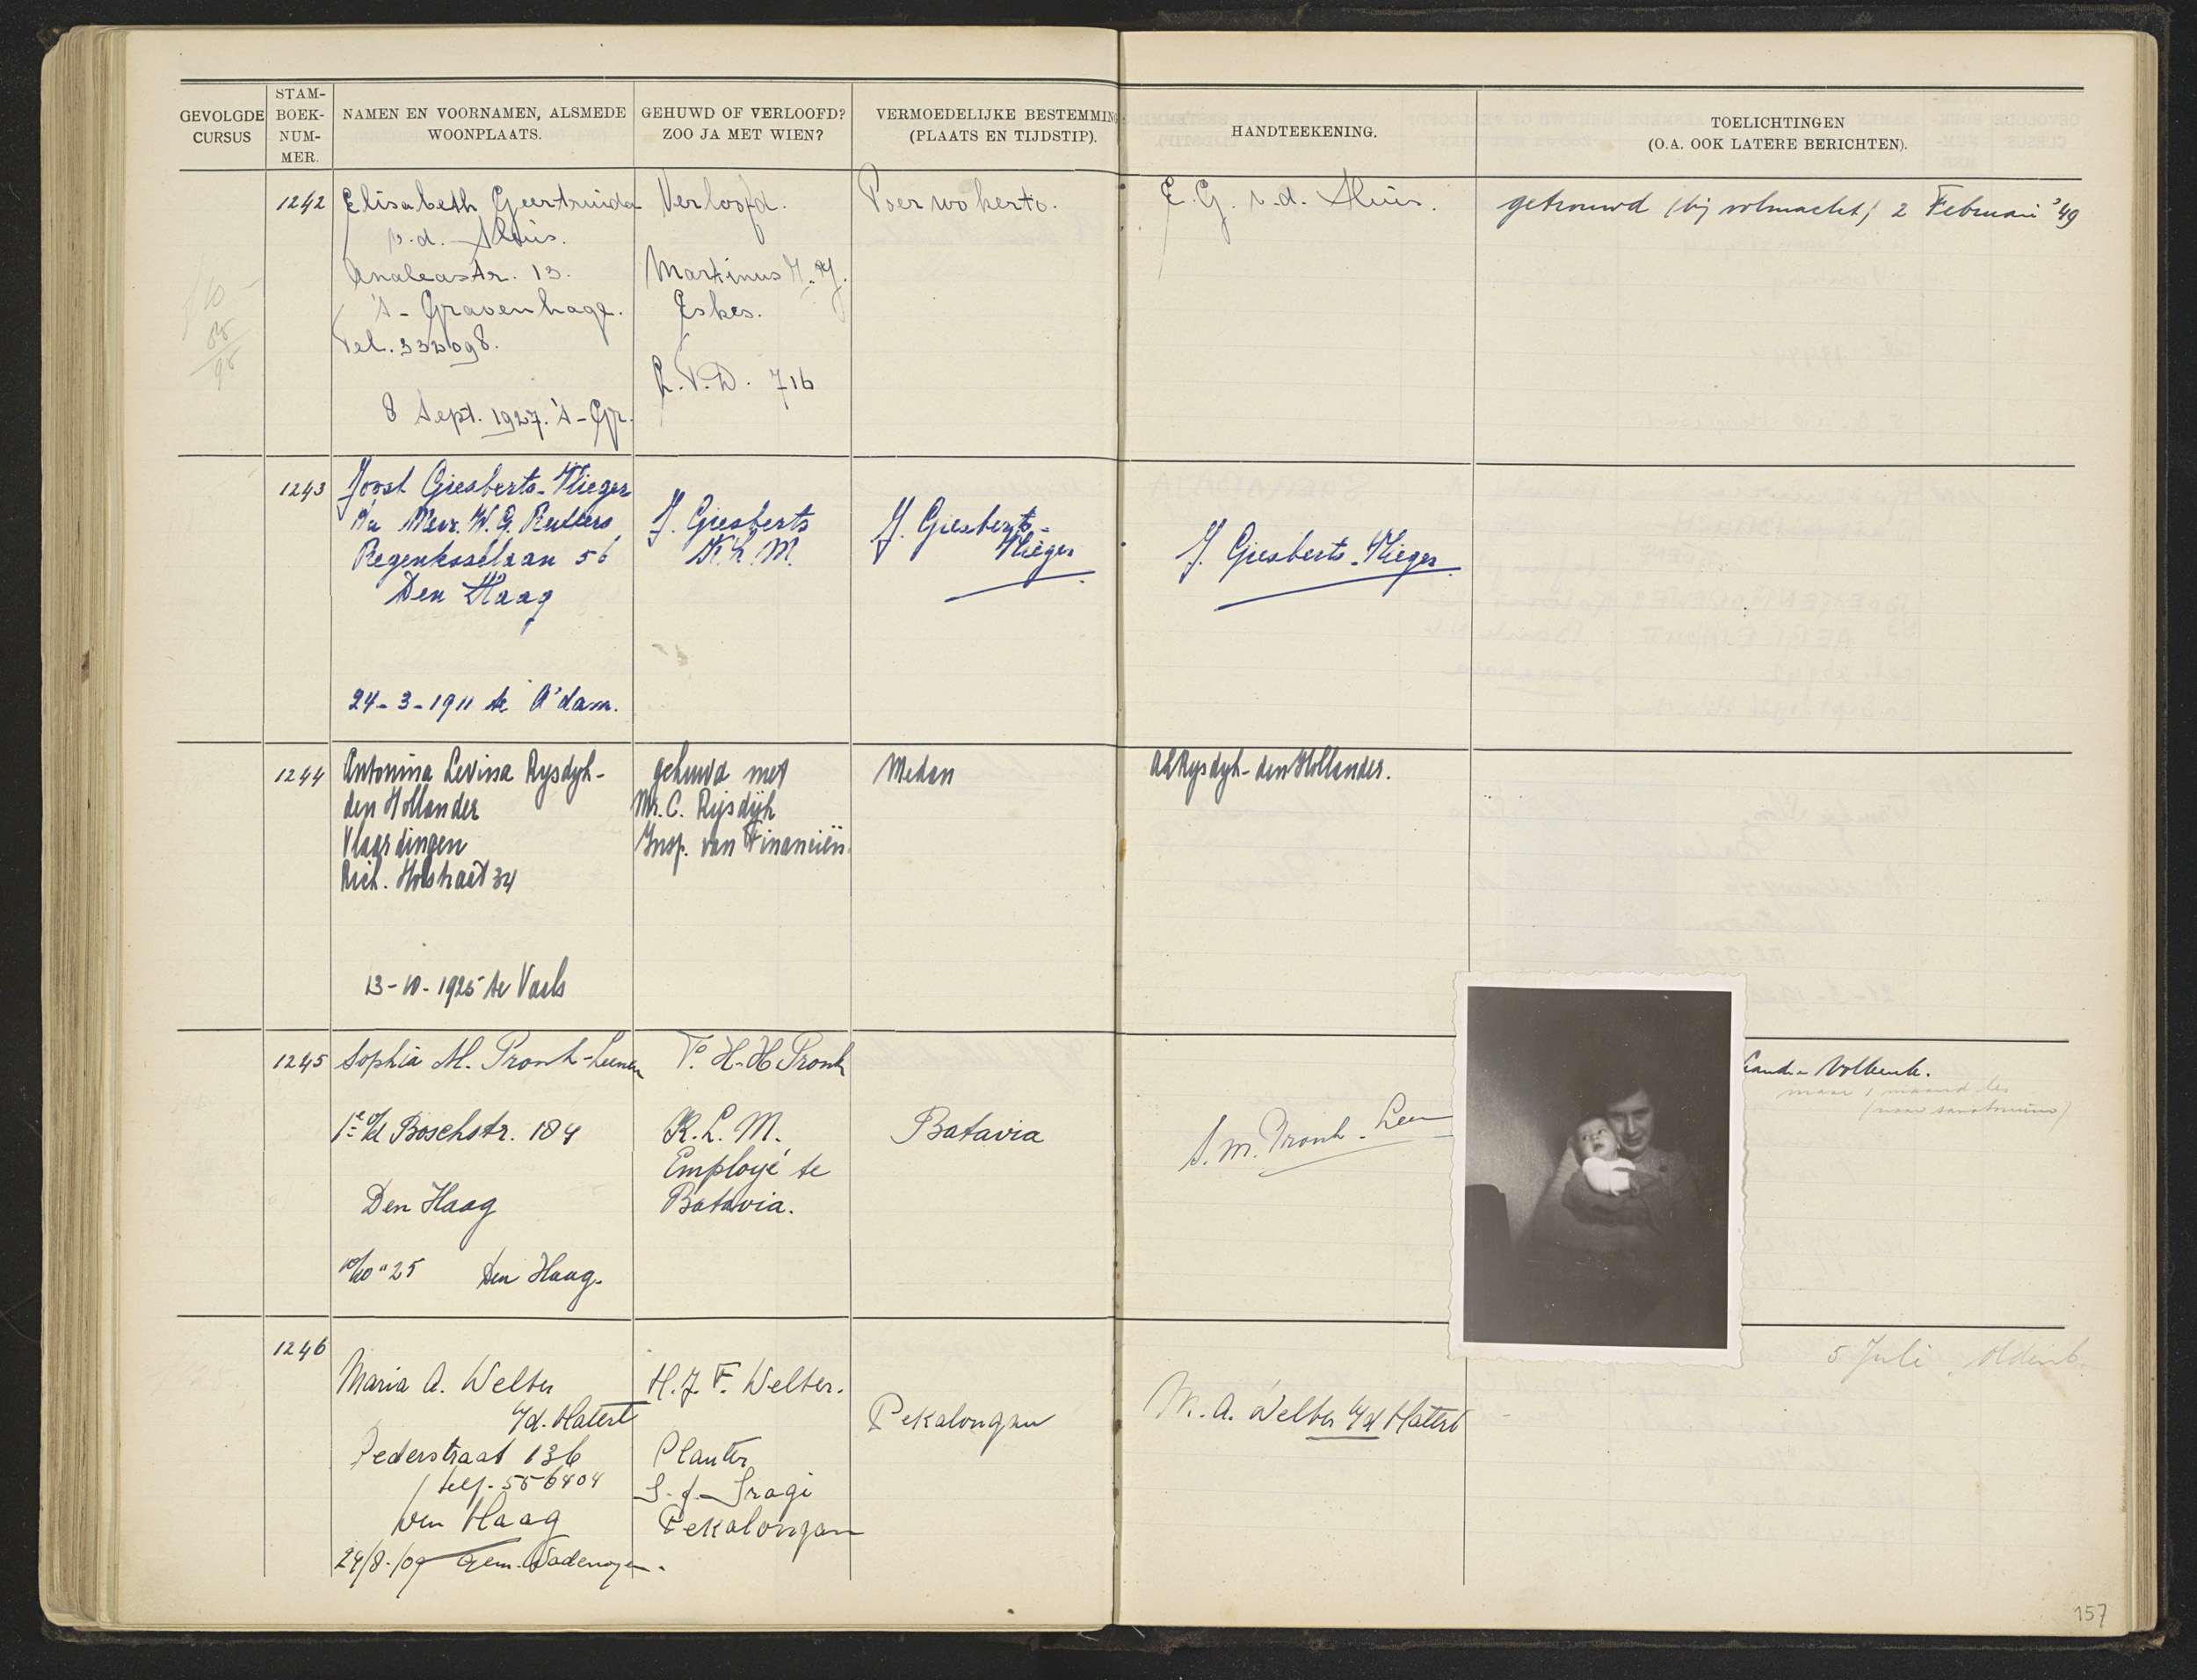 GEVOLGDE CURSUS
STAM-BOEK-NUM-MER.
NAMEN EN VOORNAMEN, ALSMEDE WOONPLAATS.
GEHUWD OF VERLOOFD? ZOO JA MET WIEN?
VERMOEDELIJKE BESTEMMING (PLAATS EN TIJDSTIP).
HANDTEEKENING.
TOELICHTINGEN (O.A. OOK LATERE BERICHTEN).
1242
Elisabeth Geertruida
v.d. Sluis.
13.
's-Gravenhage.
Tel. 332098.
8 Sept. 1927. 's-Gr.
Verloofd.
Martinus
Eskes.
L.T.D. 716
Poerwokerto.
E. G. v.d. Sluis.
getrouwd (bij volmacht) 2 Februari '49
1243
Joost Giesberts-Vlieger
p/a Mevr. W. G. Rutters
Regentesselaan 56
Den Haag
24-3-1911 te A'dam.
J. Giesberts
K.L.M.
J. Giesberts-
Vlieger
J. Giesberts-Vlieger
1244
Antonina Levina Rysdyk-
den Hollander
Vlaardingen
Rich. Holstraat 34
13-10-1925 te Vaals
gehuwd met
Mr. C. Rijsdijk
Insp. van Financiën.
Medan
AL Rysdyk-den Hollander.
1245
Sophia M. Pronk-Leenen
1e v/d Boschstr. 184
Den Haag
25 Den Haag.
H.H Pronk
K.L.M.
Employé te
Batavia.
Batavia
S. M. Pronk-Leen
Volkenk.
maar 1 maand les
(naar sanatorium)
1246
Maria A. Welter
v/d. Hatert
Pederstraat 136
telf. 556404
Den Haag
24/8-/09 Gem. Wadenoyen.
H. J. F. Welter.
Planter
S.f. Sragi
Pekalongan
Pekalongan
M. A. Welter v/d Hatert
5 Juli
157